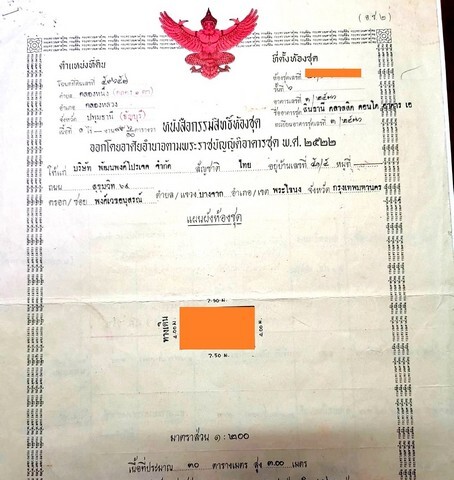 (อ.ช.๒)
ตำแหน่งที่ดิน
โฉนดที่ดินเลขที่
ตำบล คลองหนึ่ง
อำเภอ คลองหลวง
จังหวัด ปทุมธานี (ธัญบุรี)
เนื้อที่ ๑ ไร่ – งาน ตารางวา
ที่ตั้งห้องชุด
ห้องชุดเลขที่
ชั้นที่
อาคารเลขที่
ชื่ออาคารชุด
ทะเบียนอาคารชุดเลขที่
หนังสือกรรมสิทธิ์ห้องชุด
ออกโดยอาศัยอำนาจตามพระราชบัญญัติอาคารชุด พ.ศ. ๒๕๒๒
ให้แก่ บริษัท พัฒนพงศ์โปรเจค จำกัด สัญชาติ ไทย อยู่บ้านเลขที่ ๕๑/๕ หมู่ที่
ถนน สุขุมวิท ๖๔ ตำบล/แขวง บางจาก อำเภอ/เขต พระโขนง จังหวัด กรุงเทพมหานคร
ตรอก/ซอย พงศ์เวชอนุสรณ์
แผนผังห้องชุด
7.50 ม.
ทางเดิน
4.00 ม.
4.00 ม.
7.50 ม.
มาตราส่วน ๑ : ๒๐๐
เนื้อที่ประมาณ ๓๐ ตารางเมตร สูง ๓.๐๐ เมตร